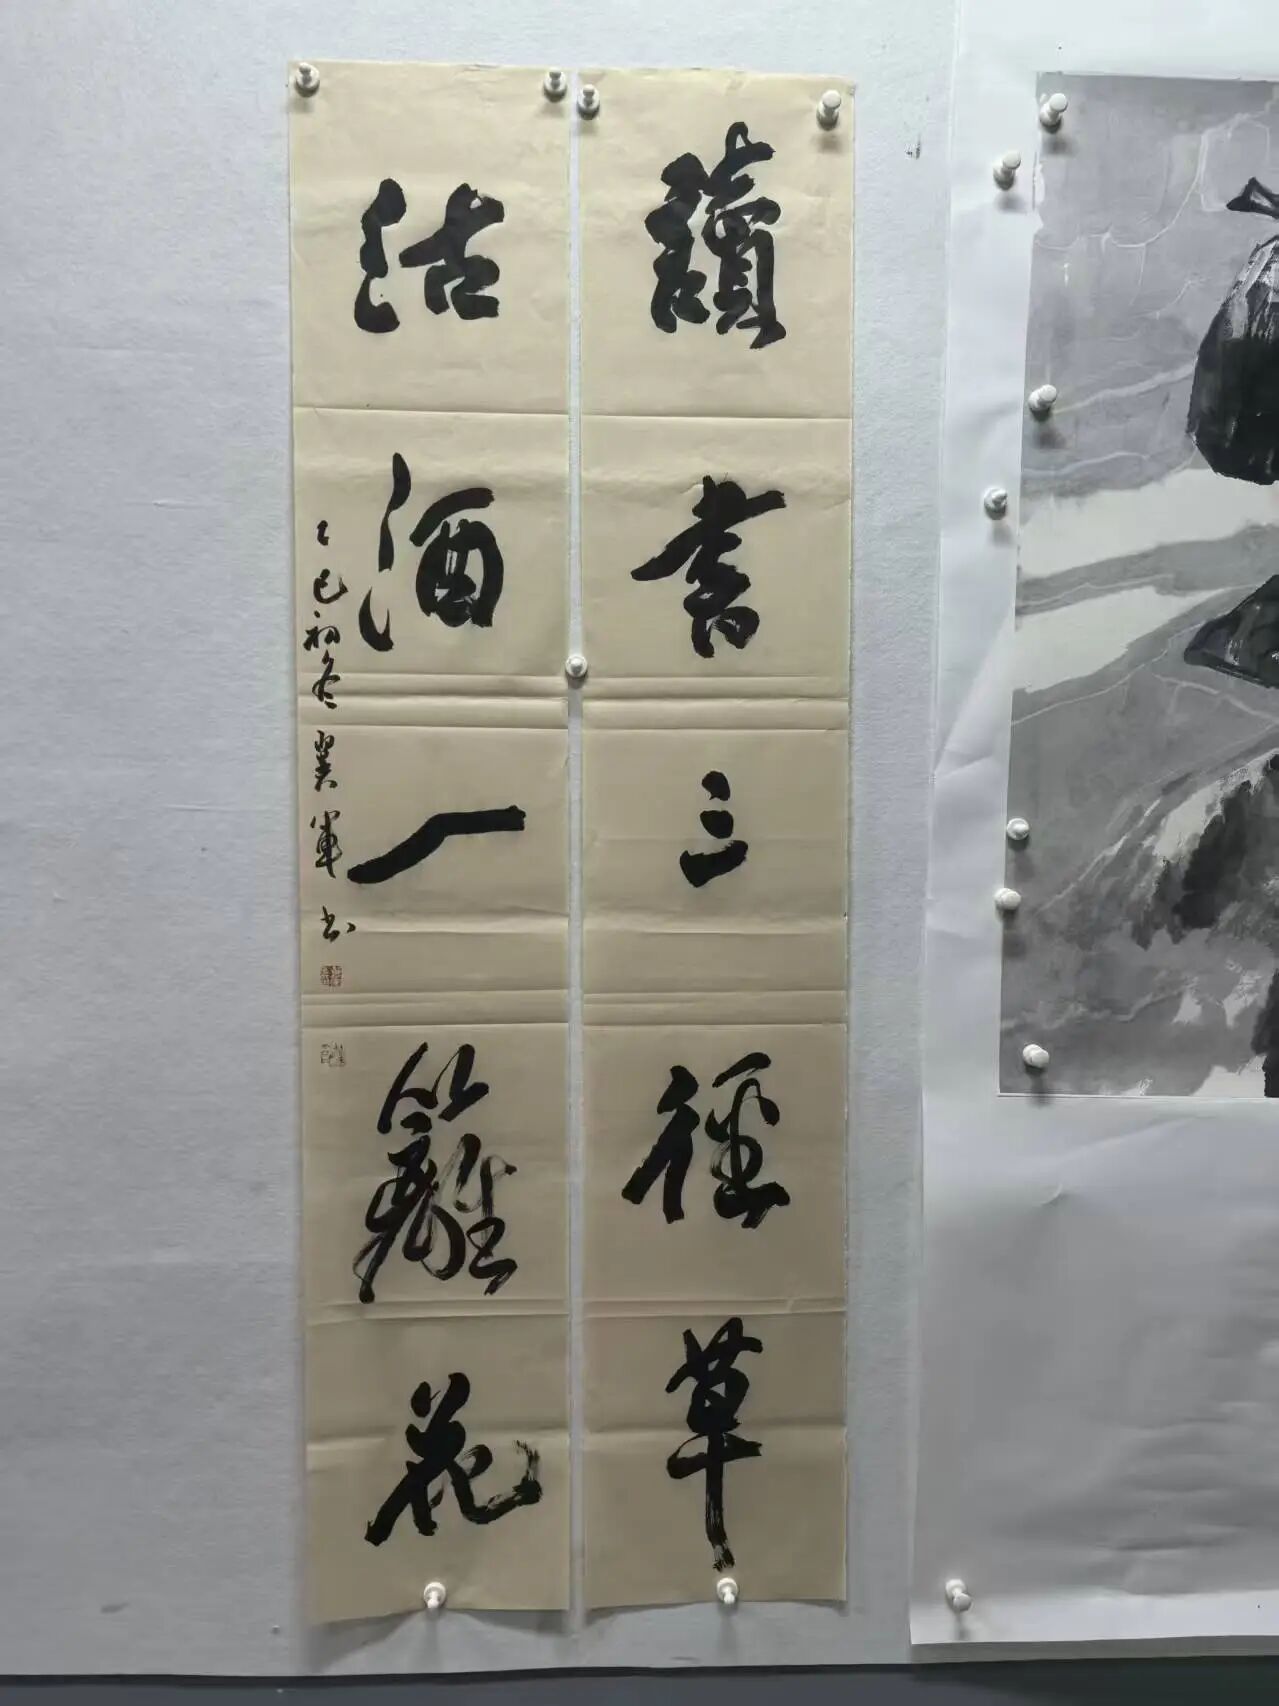 讀書三徑草
沽酒一籬花
乙巳初冬翼軍书